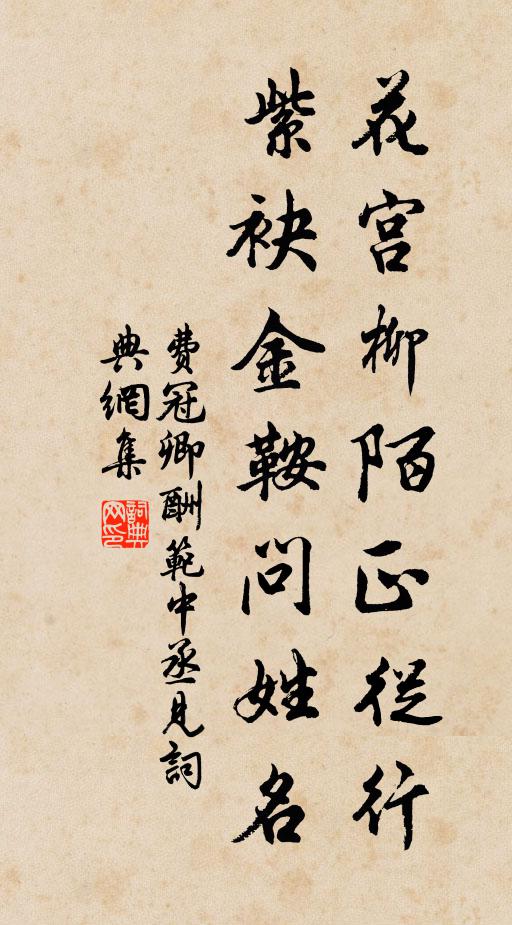 花宫柳陌正從行
紫袂金鞍問姓名
費冠卿酬範中丞見詞
典網集
詞典
网印